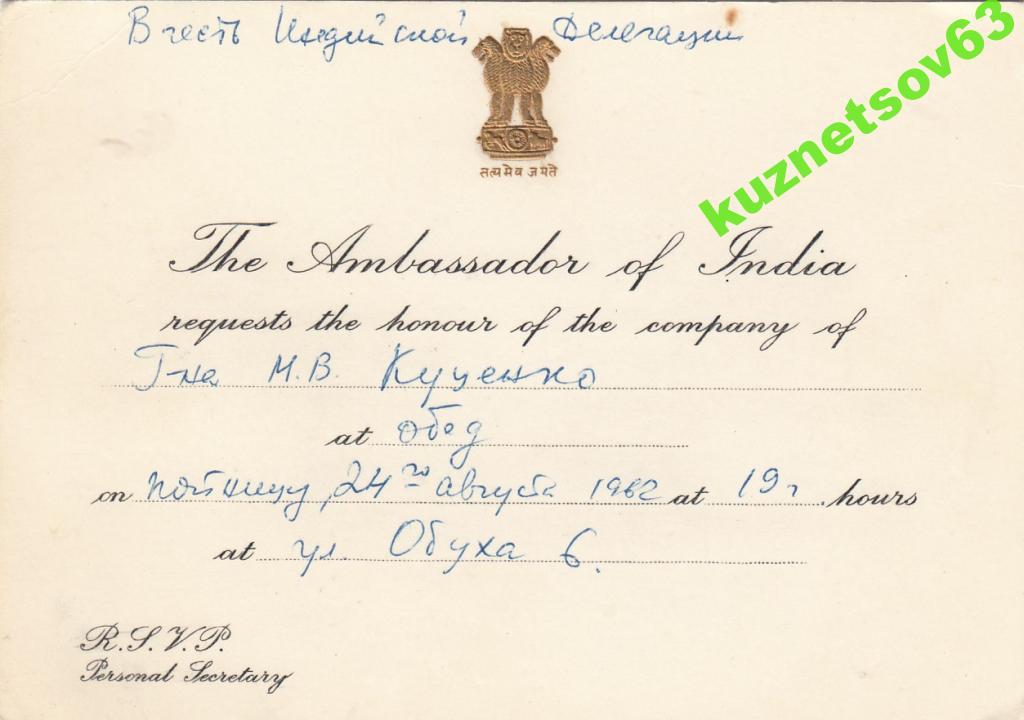 В честь Индийской Делегации
kuznetsov63
सत्यमेव जयते
The Ambassador of India
requests the honour of the company of
Г-на М.В. Куценко
at обед
on пятницу, 24го августа 1962 at 19 г. hours
at ул. Обуха 6.
R.S.V.P.
Personal Secretary